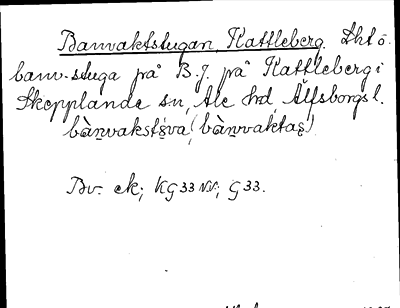 Banvaktstugan, Kattleberg. Åbt ö.
banv.stuga på B.J. på Kattleberg i
Skepplanda sn, Ale hd, Älfsborgs l.
bànvakstɣva (bànvaktas)
Bv. ek; KG33NV; G33.